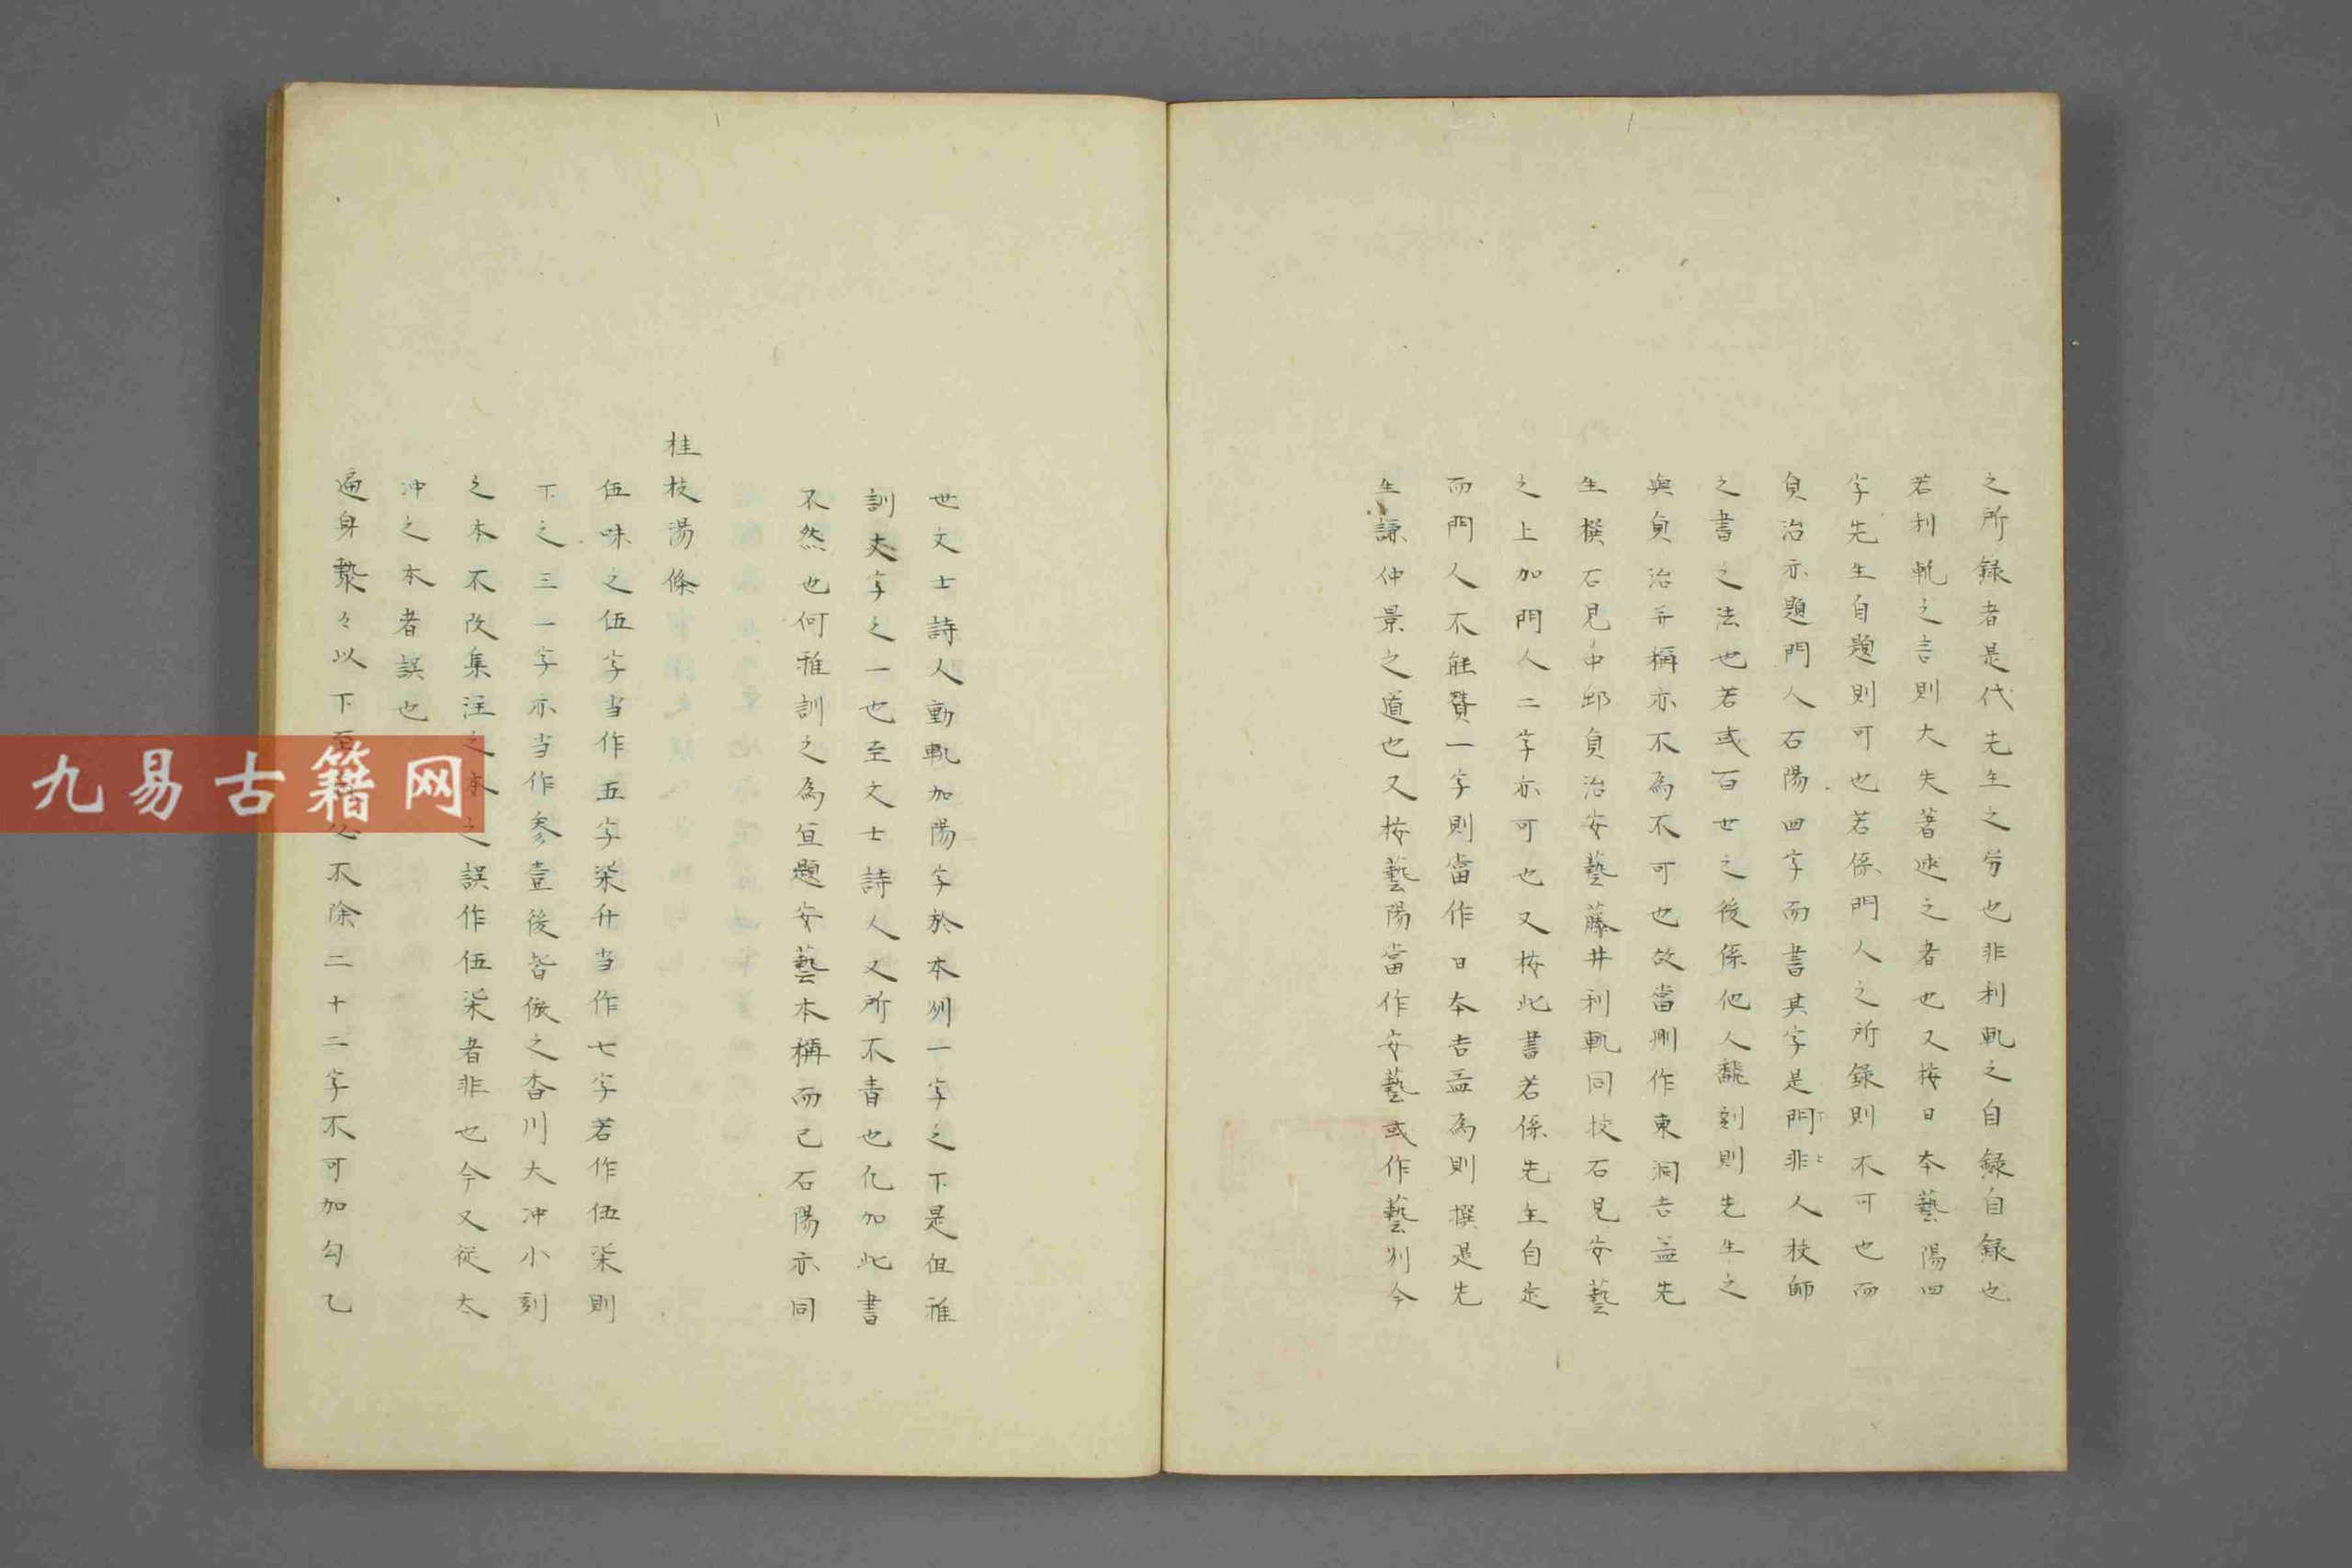 之所録者是代先生之労也非利軌之自録自録也
若利軌之言則大失著述之者也又按日本藝陽四
字先生自題則可也若係門人之所錄則不可也而
貞治亦題門人石陽四字而書其字是門非人校師
之書之法也若或百世之後係他人飜刻則先生之
與貞治并稱亦不為不可也故當刪作東洞吉益先
生撰石見中邨貞治安藝藤井利軌同校石見安藝
之上加門人二字亦可也又按此書若係先生自定
而門人不能贊一字則當作日本吉益為則撰是先
生謙仲景之道也又按藝陽當作安藝或作藝州今
世文士詩人動軌加陽字於本州一字之下是伹雅
訓夫字之一也至文士詩人又所不責也化加此書
不然也何雅訓之為宜題安藝本稱而已石陽亦同
桂枝湯條
伍味之伍字当作五字柒升当作七字若作伍柒則
下之三一字亦当作参壹後皆倣之香川大冲小刻
之本不改集注之本之誤作伍柒者非也今又従太
冲之本者誤也
遍身漐々以下至必不除二十二字不可加勾乙
九易古籍网